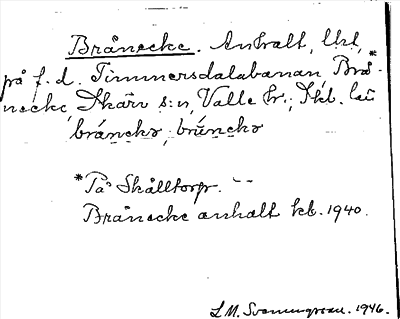 Brånecke. Anhalt,
på f. d. Timmersdalabanan, Brå-*
necke, Skärv s:n, Valle hr.; Skb. län
bráneckə, brúneckə
*På Skålltorp. --
Brånecke anhalt kb. 1940.
L M. Svenungsson. 1946.